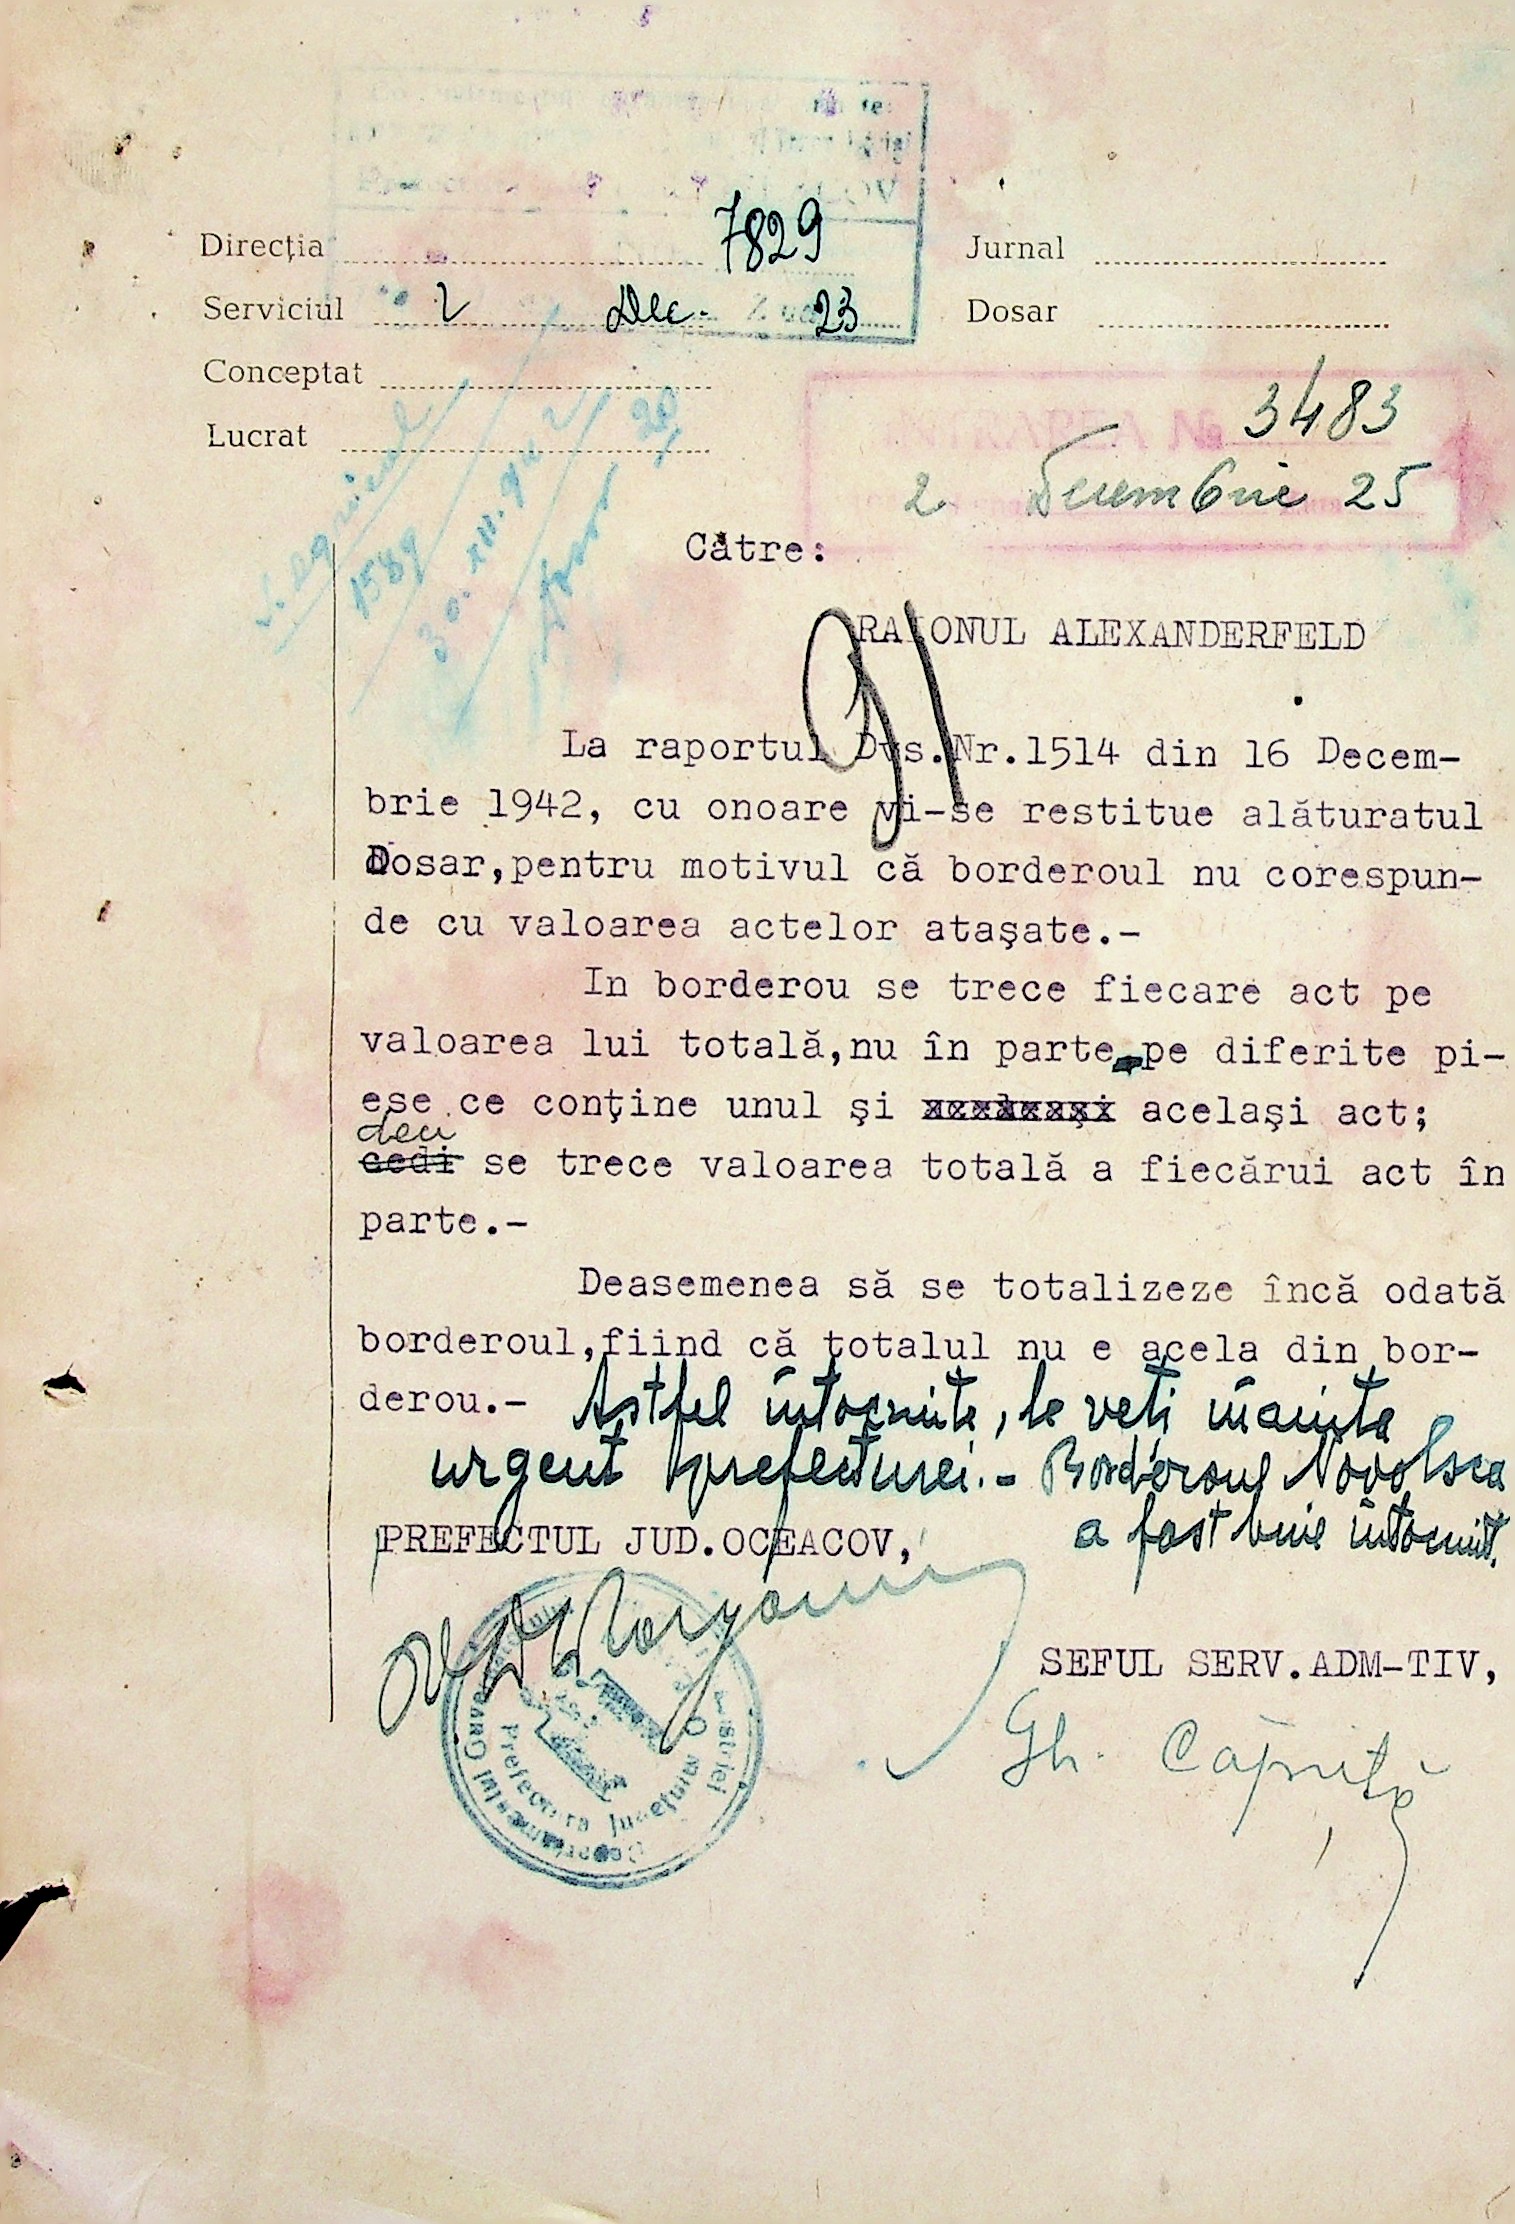 7829
Direcţia
Jurnal
Serviciul 2 Dec. 23
Dosar
Conceptat
Lucrat
INTRAREA No 3483
2 Decembrie 25
S. agricol
1589
30.XII.942
Către:
RAIONUL ALEXANDERFELD
La raportul Dvs.Nr.1514 din 16 Decem-
brie 1942, cu onoare vi-se restitue alăturatul
Dosar,pentru motivul că borderoul nu corespun-
de cu valoarea actelor ataşate.-
In borderou se trece fiecare act pe
valoarea lui totală,nu în parte pe diferite pi-
ese ce conţine unul şi acelaşi act;
deci
cedi se trece valoarea totală a fiecărui act în
parte.-
Deasemenea să se totalizeze încă odată
borderoul,fiind că totalul nu e acela din bor-
derou.- Astfel întocmite, le veti înainta
urgent prefecturei.- Borderoul
a fost bine întocmit.
PREFECTUL JUD.OCEACOV,
SEFUL SERV.ADM-TIV,
Gh. Căpriţă
Prefectura Judeţului O